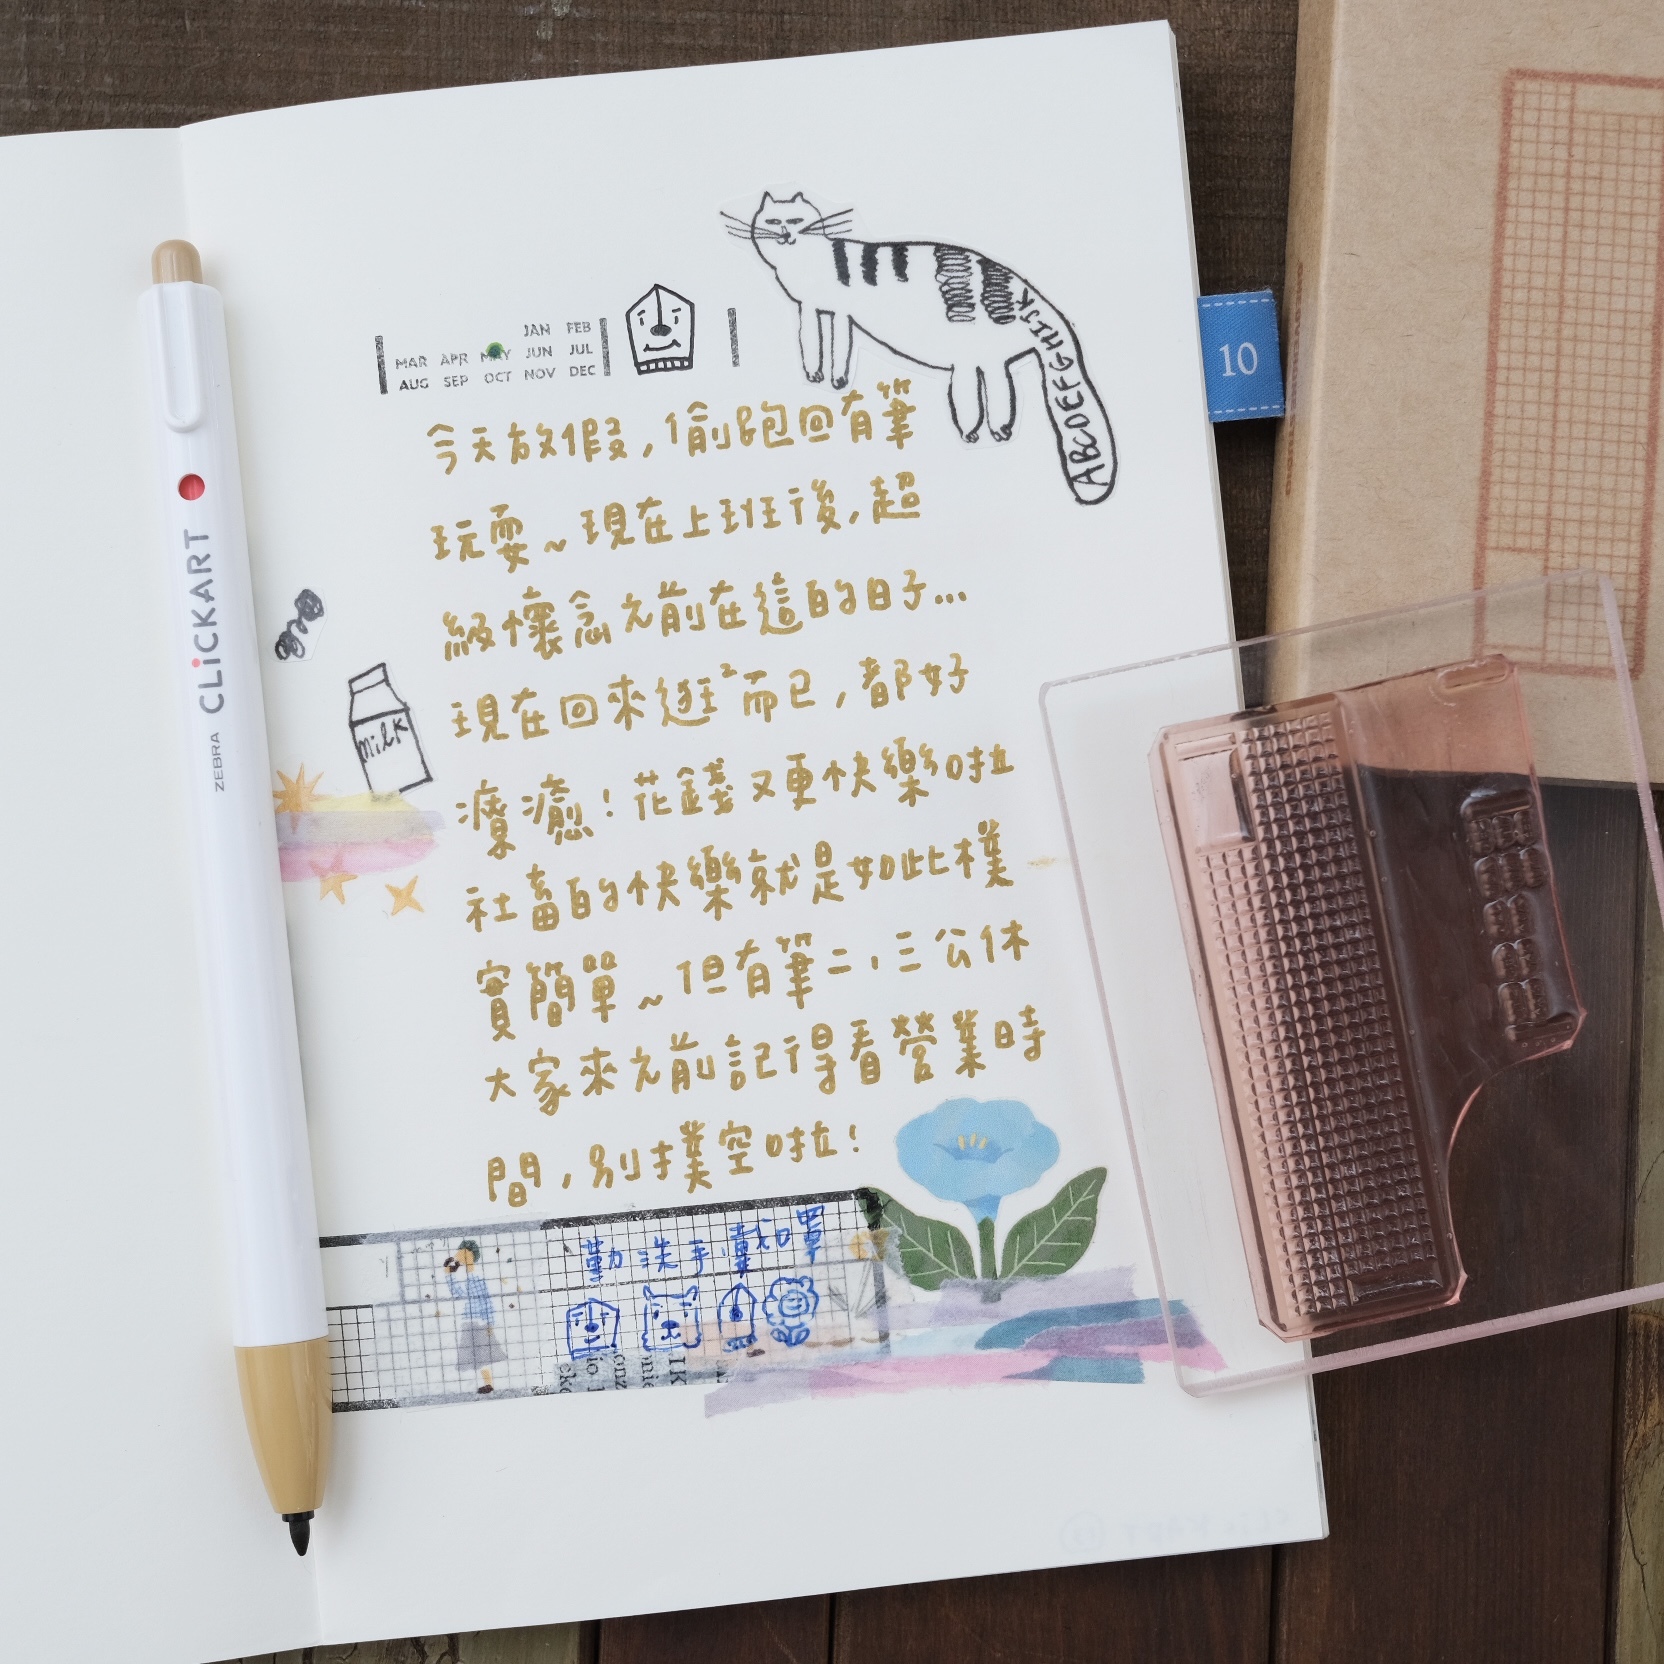 JAN FEB
MAR APR MAY JUN JUL
AUG SEP OCT NOV DEC
ABCDEFGHIJK
今天放假，偷跑回有筆
玩耍~現在上班後，超
級懷念之前在這的日子...
現在回來逛逛而已，都好
療癒！花錢又更快樂啦
社畜的快樂就是如此樸
實簡單~但有筆二、三公休
大家來之前記得看營業時
間，別撲空啦！
勤洗手戴口罩
milk
ZEBRA CLiCKART
10